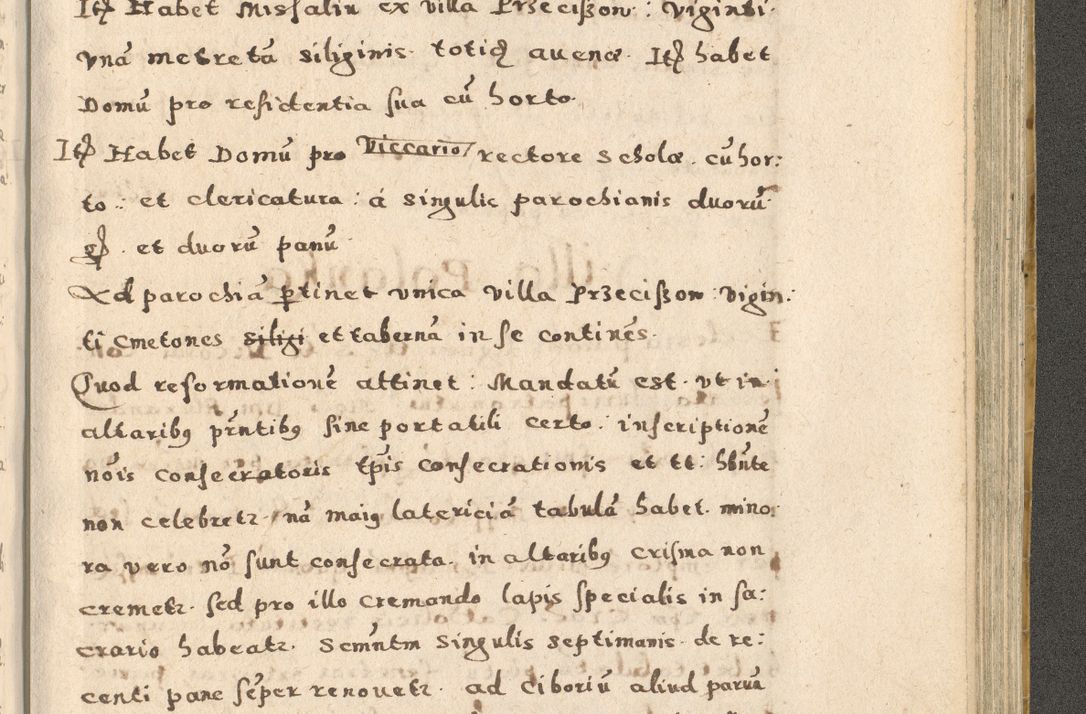 Itē Habet Missaliū ex villa Przecißow : viginti·
vnā metretā siliginis· totiđ auenæ· Itē habet
Domū pro residentia sua cū horto·
Itē Habet Domū pro Viccario rectore scholæ· cū hor:
to : et clericatura : á singulis parochianis duorū
g̃ · et duorū panū·
Ad parochiā ptinet vnica villa Przecißow : vigin:
ti cmetones siligi et tabernā in se continēs·
Quod reformationē attinet : Mandatū est· vt in
altaribȝ prn̄tibȝ sine portatili certo· inscriptionē
nōis consecratoris tp̄is consecrationis et tt: hn̄te
non celebretr nā maiȝ latericiā tabulā habet· mino
ra vero nō sunt consecrata· in altaribȝ crisma non
cremetr· sed pro illo cremando lapis specialis in sa:
crario habeatr· Scm̄ntm singulis septimanis· de re:
centi pane sēper renouetr· ad ciboriū aliud paruū